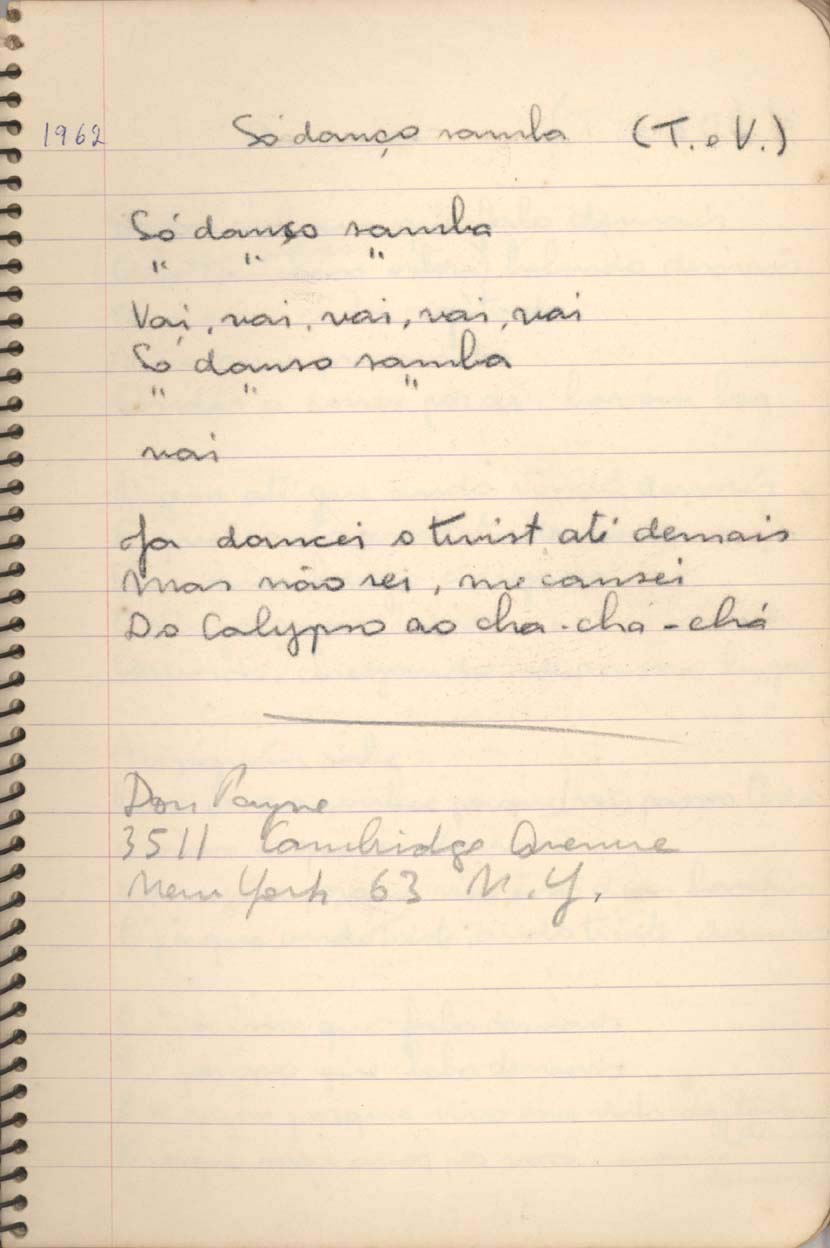 1962 Só danço samba (T. e V.)
Só danso samba
" " "
Vai, vai, vai, vai, vai
Só danso samba
" " "
vai
Ja dancei o twist até demais
Mas não sei, me cansei
Do Calypso ao cha-chá-chá
Don Payne
3511 Cambridge Avenue
New York 63 N.Y.